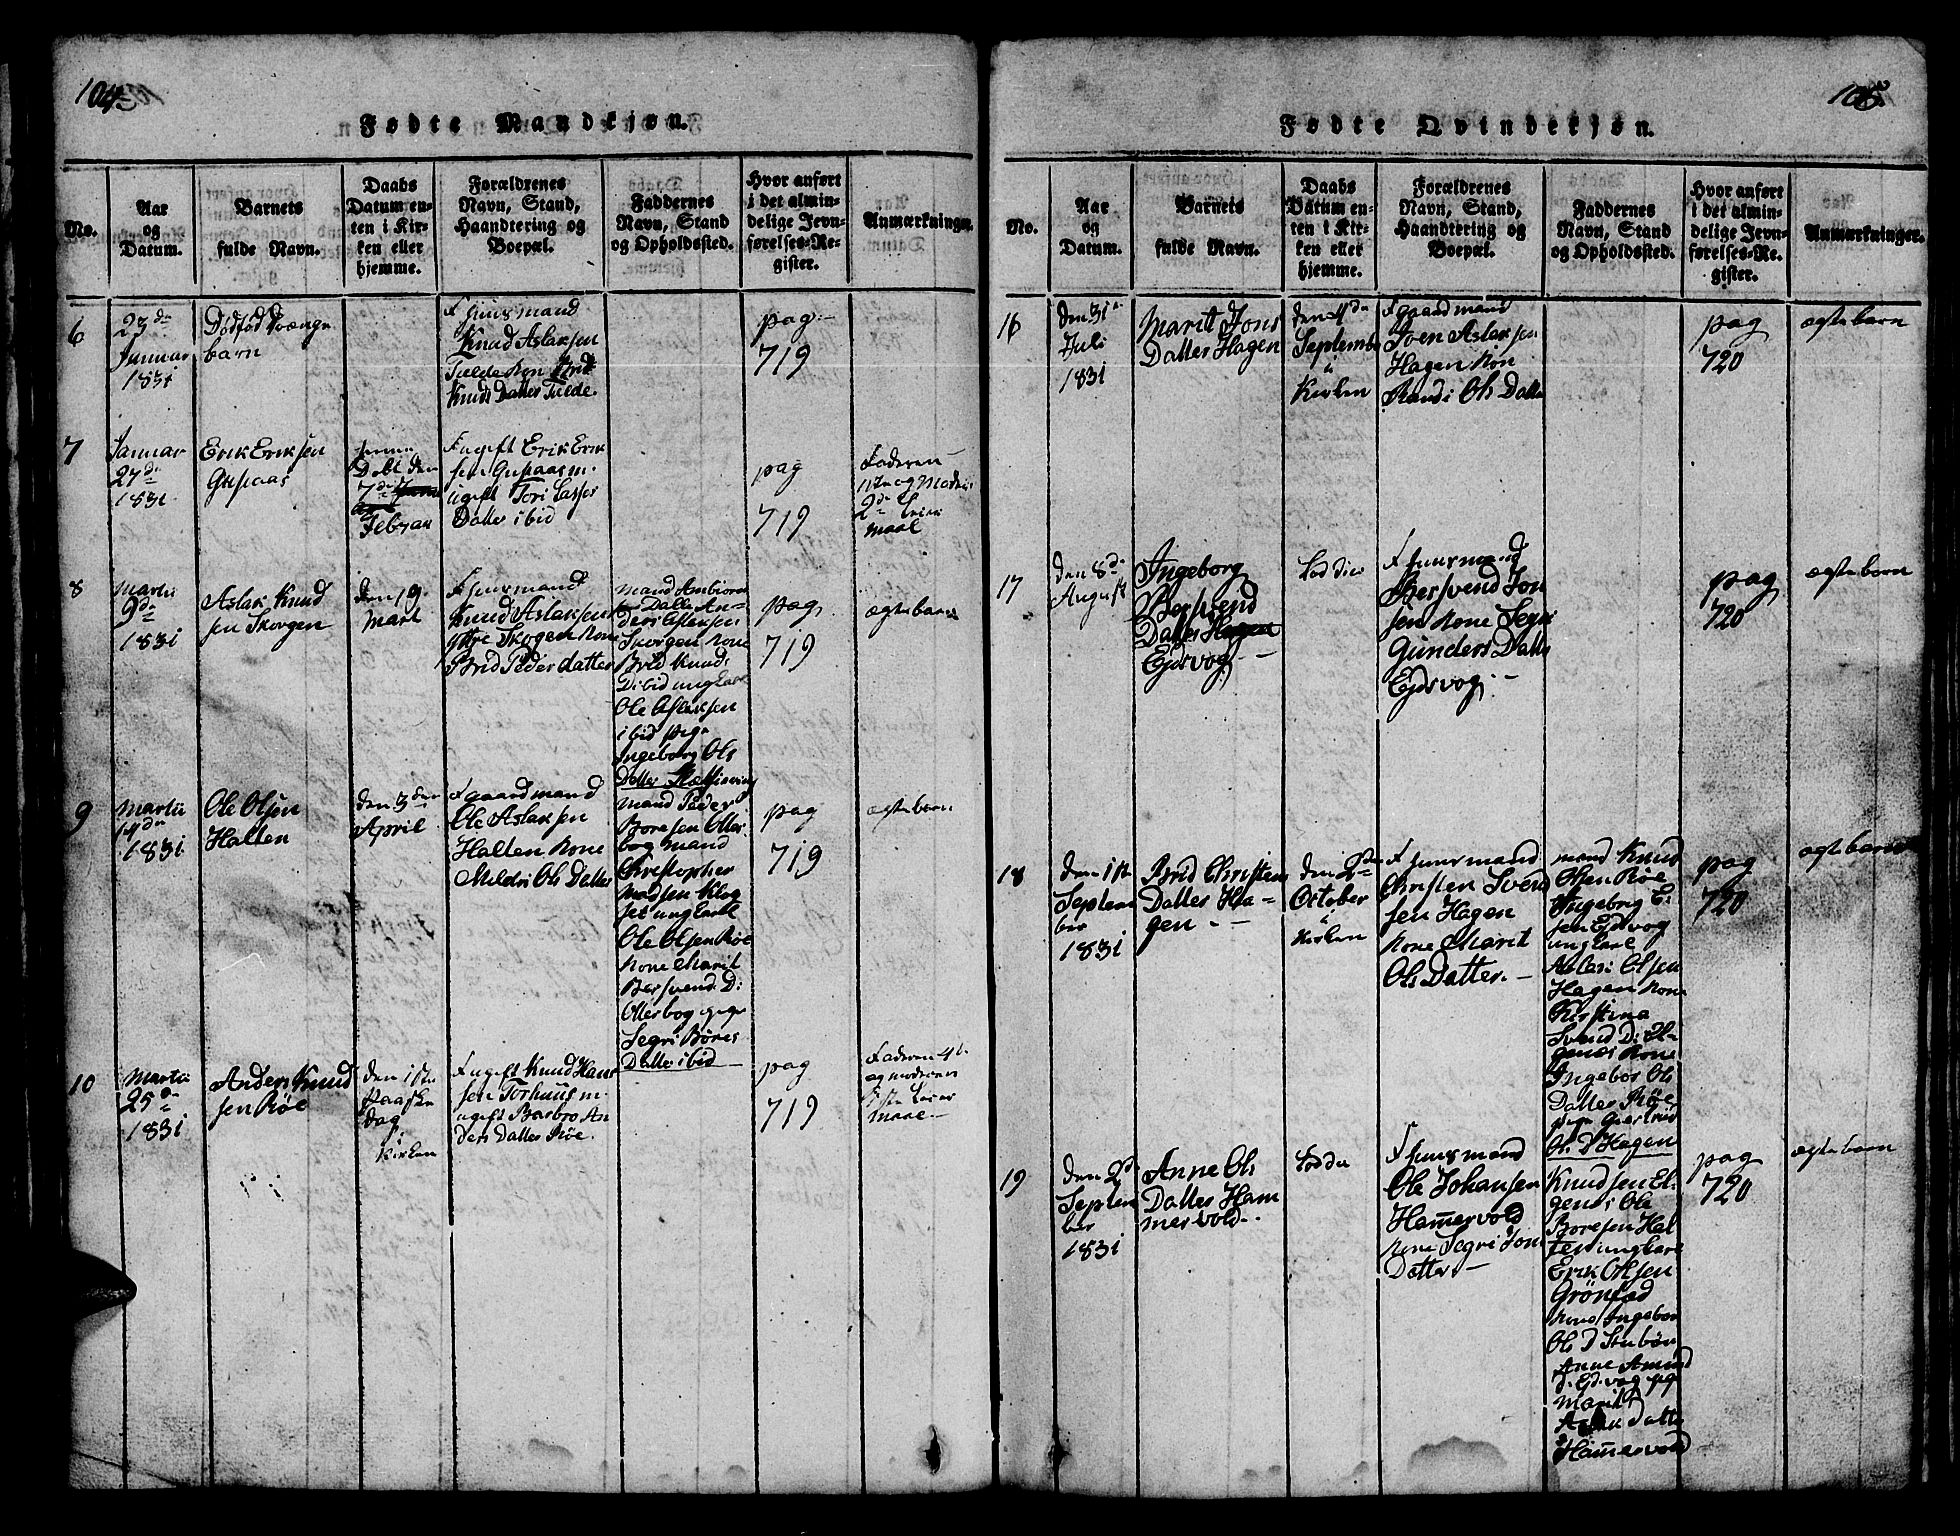 104
Fødte Mandkjøn.
No.
Aar
og
Datum.
Barnets
fulde Navn.
Daabs
Datum en-
ten i Kir-
ken eller
hjemme.
Forældrenes
Navn, Stand,
Haandtering og
Boepæl.
Faddernes
Navn, Stand
og Opholdssted.
Hvor anført
i det almin-
delige Jevn-
førelses-Re-
gister.
Anmærkninger.
6
23de
Januar
1831
Dødfød Drænge
barn
F huusmand
Knud Aslaksen
Tilde Kone
Knuds Datter Tilde.
pag.
719
7
Januar
27de
1831
Erik Eriksen
Guspaas
Døbt den
7de
Februar
F ugift Erik Erik
sen Guspaas m.
ugift Tori Lasses
Datter ibid
pag
719
Faderen
og Modren
2de Leier
maal
8
Martii
9de
1831
Aslak Knud
sen Skorgen
den 19
Mart
F huusmand
Knud Aslaksen
Skogen Kone
Brid Peder datter
mand
Datter An-
ders Aslaksen
Skorgen Kone
Brid Knuds
D ibid ungkarl
Ole Aslaksen
ibid pige
Ingeborg Ols
Datter
pag.
719
ægte barn
9
Martii
14de
1831
Ole Olsen
Halten
den 3den
April
F gaardmand
Ole Aslaksen
Halten Kone
Mildri Ols Datter
mand Peder
Boresen Otter
bog mand
Christopher
Madsen Klog
set ungkarl
Ole Olsen Røe
Kone Marit
Bersvend D:
Otterbog pige
Segri Børes
Datter ibid
pag
719
ægte barn
10
Martii
25de
1831
Anders Knud
sen Røe
den 1ste
Paaske
dag
Kirken
F ugift Knud Hans
sen Torhuus m.
ugift Barbro An
ders Datter Røe.
pag
719
Faderen 4de
og moderen
1ste Leier
maal
105
Fødte Qvindekjøn.
No.
Aar
og
Datum.
Barnets
fulde Navn.
Daabs
Datum en-
ten i Kir-
ken eller
hjemme.
Forældrenes
Navn, Stand,
Haandtering og
Boepæl.
Faddernes
Navn, Stand
og Opholdssted.
Hvor anført
i det almin-
delige Jevn-
førelses-Re-
gister.
Anmærkninger.
16
den 31te
Juli
1831
Marit Jons
Datter Hagen
den 4de
Septembr
i
Kirken
F gaardmand
Joen Aslaksen
Hagen Kone
Randi Ols Datter
pag
720
ægte barn
17
den 8de
August
Ingeborg
Bersvend
Datter Hagen
Ejdsvog
F huusmand
Bersvend Jon
sen Kone Segri
Gunders Datter
Ejdsvog
pag
720
ægte barn
18
den 1ste
Septem
ber
1831
Brid Christens
Datter Ha-
gen
den 2den
October
i
Kirken
F huusmand
Christen Svend
sen Hagen
Kone Marit
Ols Datter.
mand Knud
Olsen Røe
Ingebrig E:
sen Ejdsvog
ungkarl
Olsen
Hagen Kone
Kirstina
Svend D: El-
genes Kone
Ingebor Ols
Datter Røe
pige Giertrud
Ols D Hagen
pag
720
ægte barn
19
den 2d
Septem
ber
1831
Anne Ols
Datter Ham
mervold
F huusmand
Ole Johansen
Hamervold
Kone Segri Jons
Datter
Knudsen El-
genes Ole
Boresen Hal
ten ungkarl
Erik Olsen
Grönfæd
Kone Ingebor
Ols D Stubøn
Anne Amund
D. Ejdsvog pige
Marit
Datter
Hamervold
pag
720
ægte barn